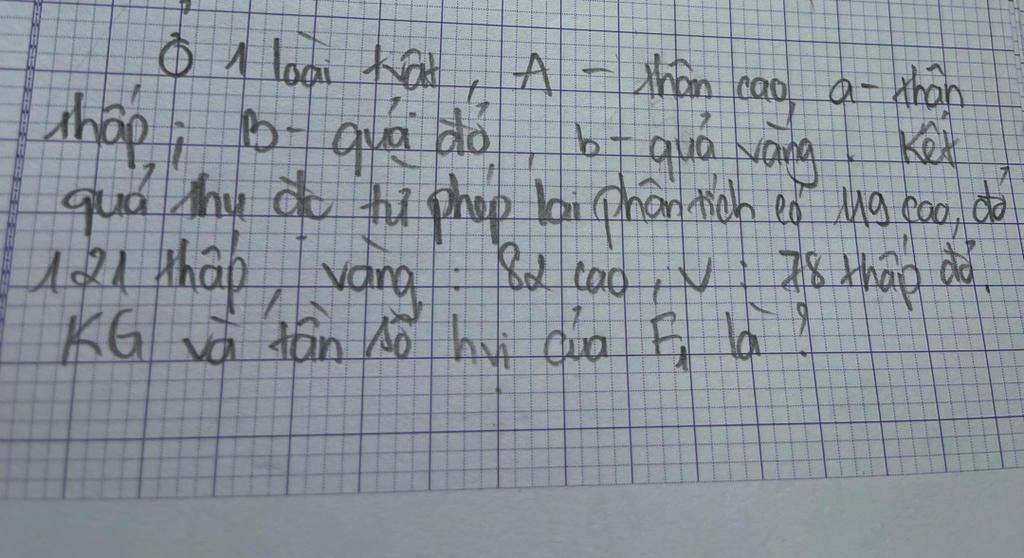 Ở 1 loài thật, A - thân cao, a - thân
thấp; B - quả đỏ, b - quả vàng. Kết
quả thu đc từ phép lai phân tích có 119 cao, đỏ
121 thấp, vàng : 82 cao, V : 78 thấp đỏ.
KG và tần số hvị của F1 là?